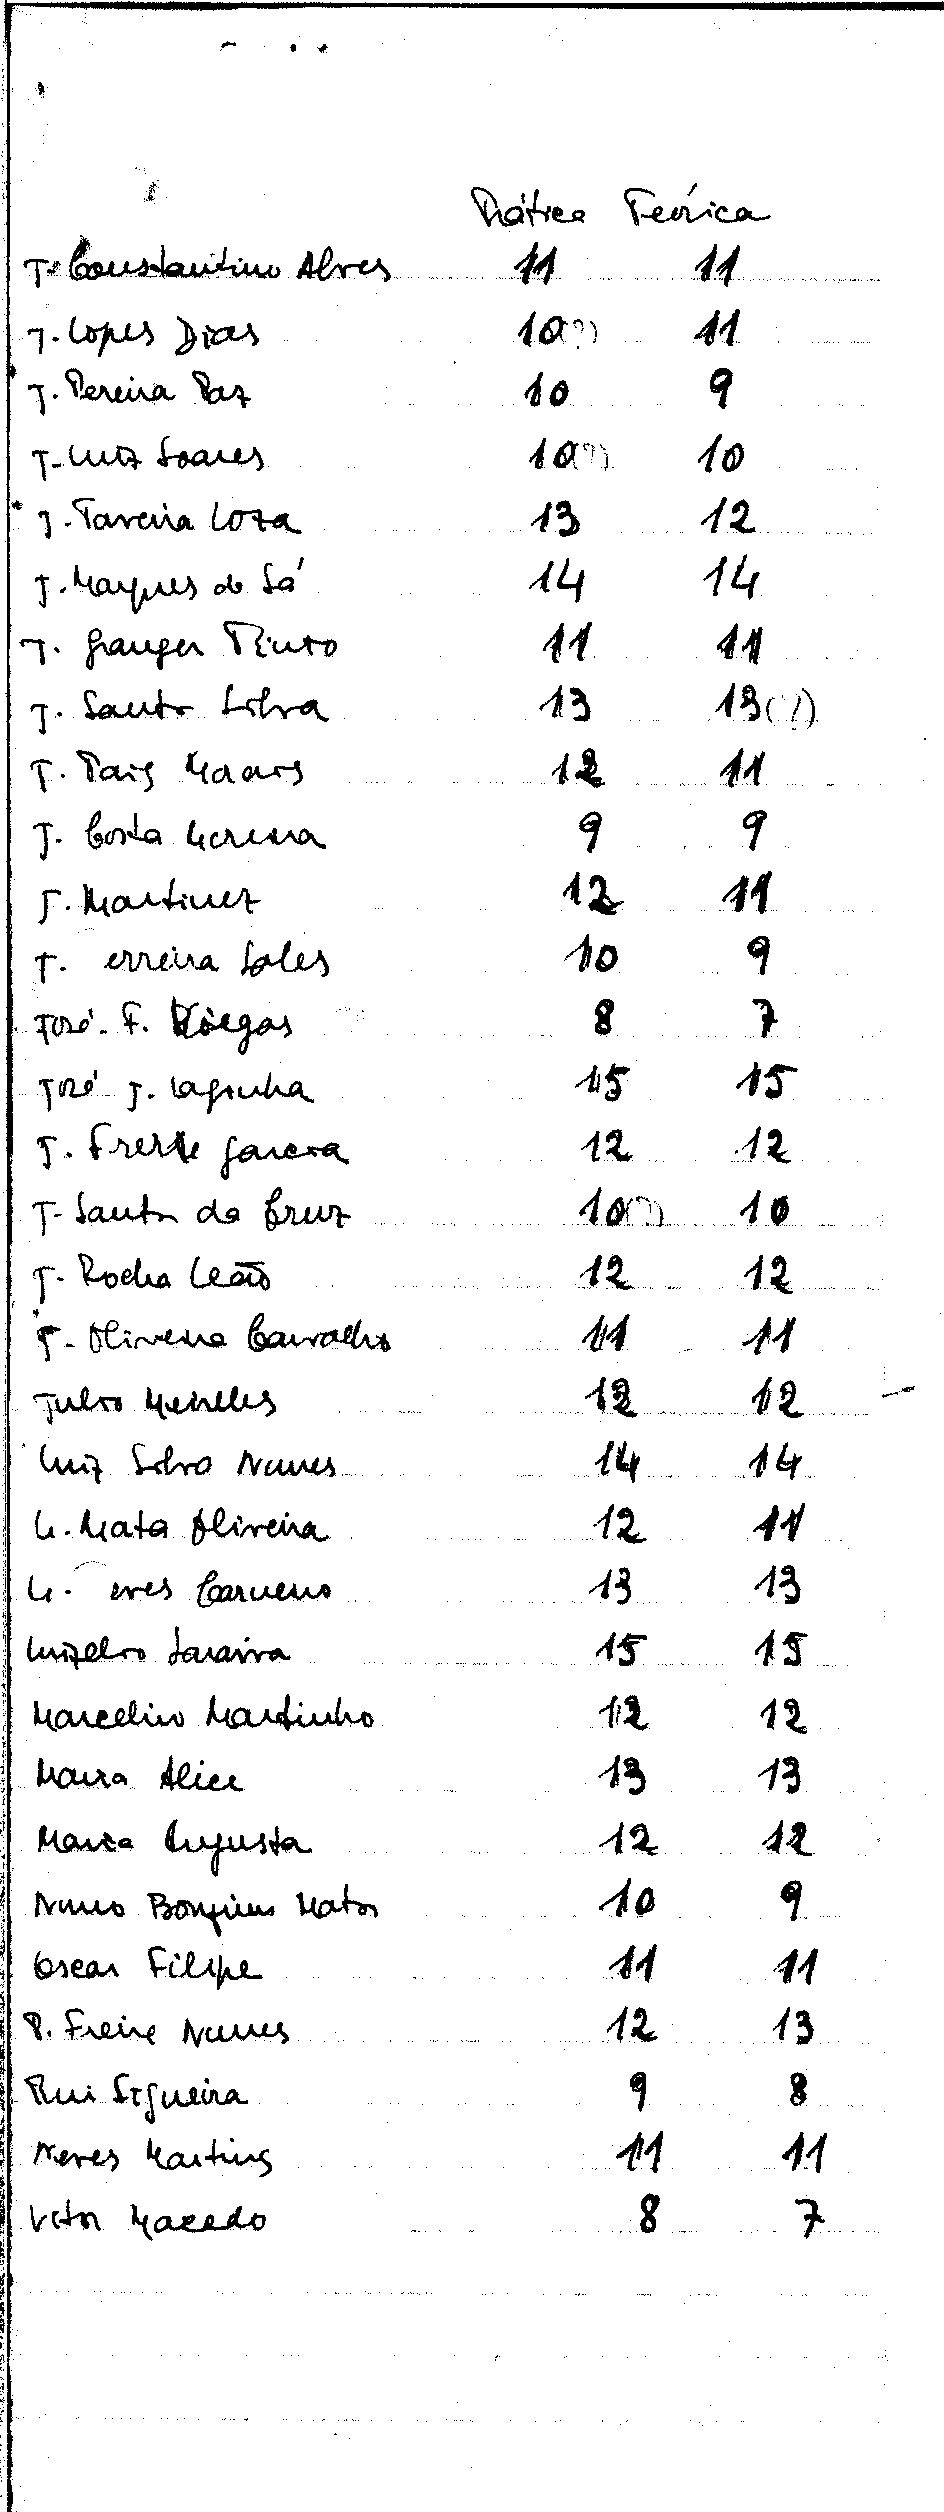 Prática Teórica
J. Constantino Alves 11 11
J. Lopes Dias 10(?) 11
J. Pereira Paz 10 9
J. Luiz Soares 10(?) 10
J. Taveira Loza 13 12
J. Marques de Sá 14 14
J. Granger Pinto 11 11
J. Santos Silva 13 13(?)
J. Pais 12 11
J. Costa Moreira 9 9
J. Martinez 12 11
J. erreira Sales 10 9
José F. Viegas 8 7
José J. Laginha 15 15
J. Freire Garcia 12 12
J. Santos da Cruz 10(?) 10
J. Rocha Leão 12 12
J. Oliveira Carvalho 11 11
Julio Meirelles 12 12
Luiz Silva Nunes 14 14
M. Mata Oliveira 12 11
M. eves Carneiro 13 13
Luizelio Saraiva 15 15
Marcelino Martinho 12 12
Maria Alice 13 13
Maria Augusta 12 12
Nuno Bonfim Matos 10 9
Oscar Filipe 11 11
P. Freire Nunes 12 13
Rui Sigueira 9 8
Neves Martins 11 11
Vitor Macedo 8 7